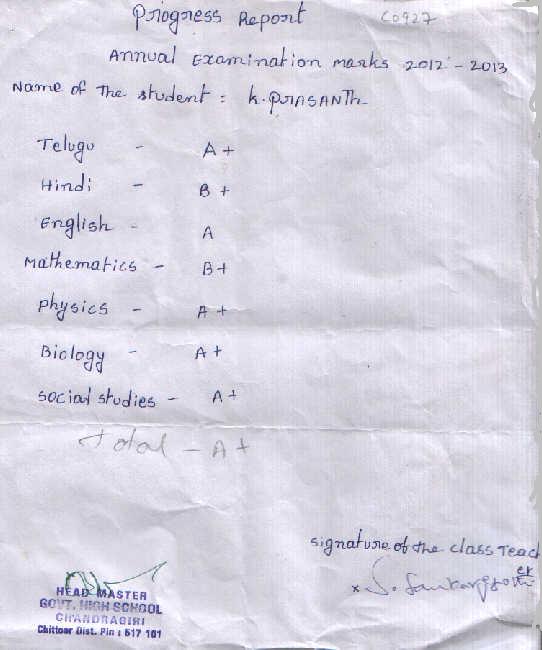 Progress Report
C0927
Annual Examination marks 2012 - 2013
Name of the student : K. PRASANTH
Telugu - A+
Hindi - B+
English - A
Mathematics - B+
Physics - A+
Biology - A+
social studies - A+
Total - A+
signature of the class Teacher
x S.
HEAD MASTER
GOVT. HIGH SCHOOL
CHANDRAGIRI
Chittoor Dist. Pin : 517 101